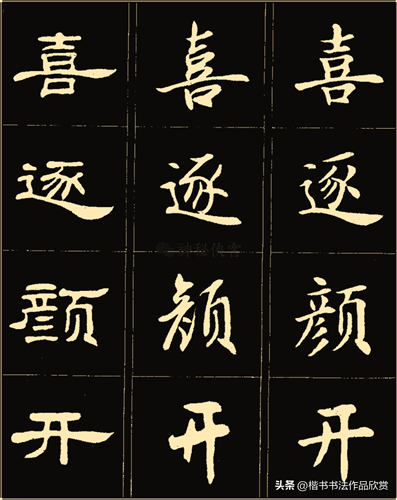 喜 喜 喜
逐 逐 逐
颜 颜 颜
开 开 开
神秘侠客
头条 @楷书书法作品欣赏